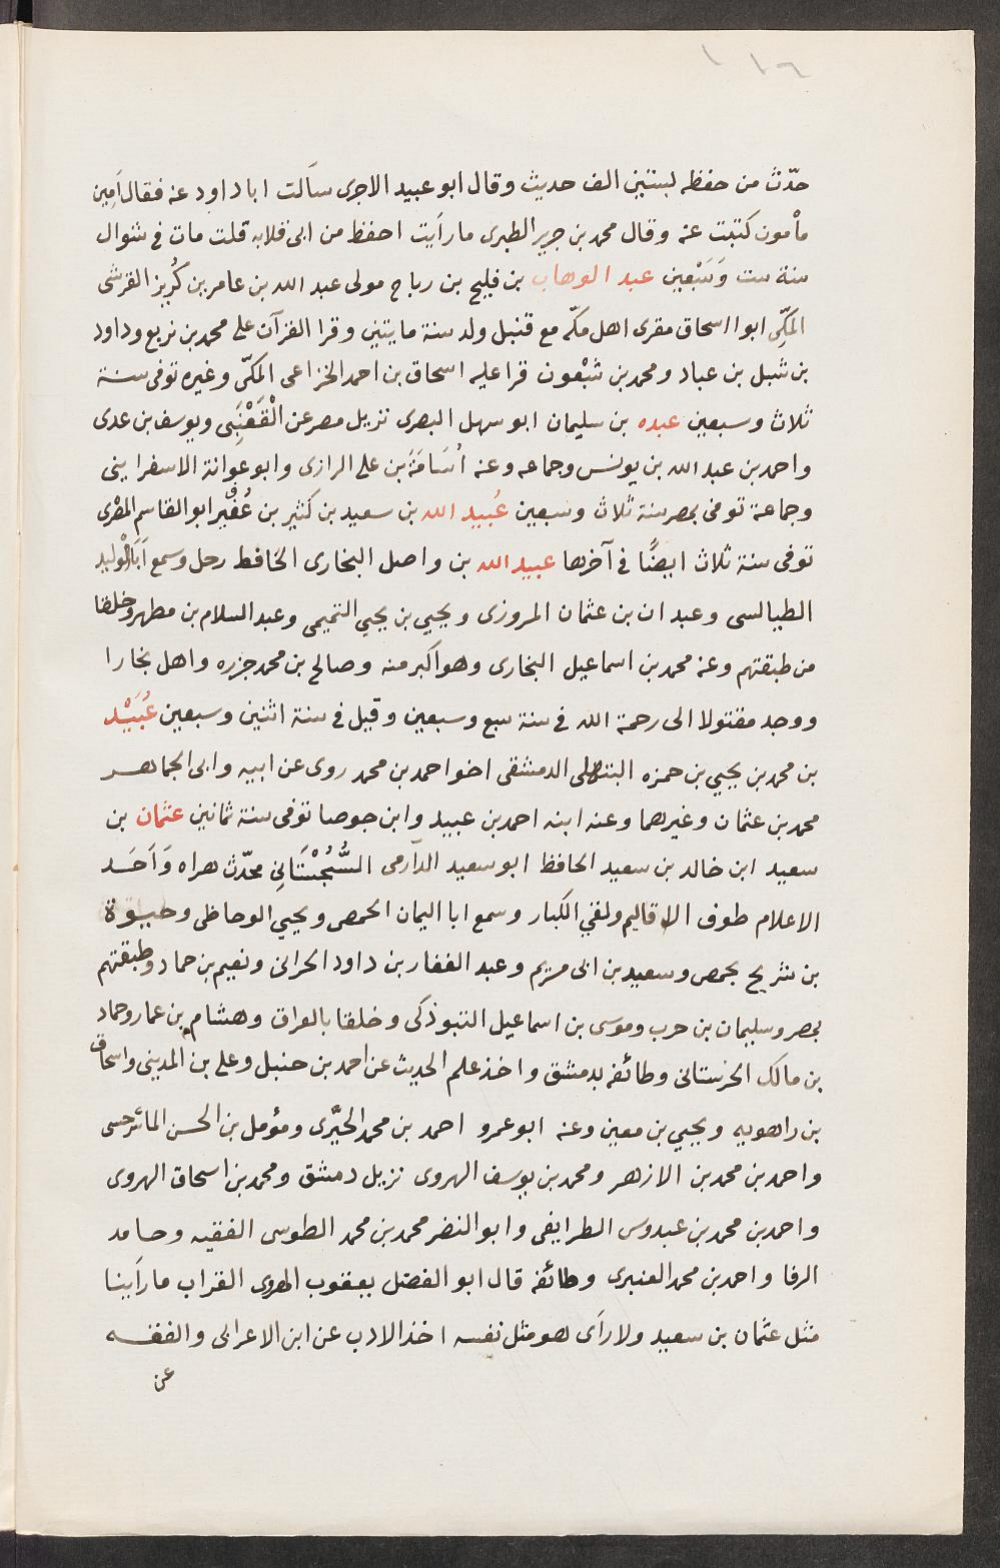 ١١٦
حدّث من حفظه لبستين الف حديث وقال ابو عبيد الاجرى سألت ابا داود عنه فقال أمين
مأمون كتبت عنه وقال محمد بن جرير الطبرى ما رأيت احفظ من ابى قلابه قلت مات فى شوال
سنة ست وَسَبْعين عبد الوهاب بن فليح بن رباح مولى عبد الله بن عامر بن كُرَيز القرشى
المكّى ابوا اسحاق مقرى اهل مكه مع قنبل ولد سنة مايتين وقرا القرآن على محمد بن بزيع وداود
بن شبل بن عباد ومحمد بن سَبْعون قرا عليه اسحاق بن احمد الخزاعى المكّى وغيره توفى سنة
ثلاث وسبعين عبده بن سليمان ابو سهل البصرى نزيل مصر عن الْقَعْنَبَى ويوسف بن عدى
واحمد بن عبد الله بن يونس وجماعه وعنه أُسَامَةَ بن على الرازى وابو عوانة الاسفراينى
وجماعة توفى بمصر سنة ثلاث وسبعين عُبيد الله بن سعيد بن كثير بن عُفَيْر ابو القاسم المصْرى
توفى سنة ثلاث ايضًا فى آخرها عبيد الله بن واصل البخارى الحافظ رحل وسمع أَبَا الْوليد
الطيالسى وعبد ان بن عثمان المروزى ويحيي بن يحيي التميمى وعبد السلام بن مطهر وخلقا
من طبقتهم وعنه محمد بن اسماعيل البخارى وهو اكبر منه وصالح بن محمد جزره واهل بخارا
ووجد مقتولا الى رحمة الله فى سنة سبع وسبعين وقيل فى سنة اثنين وسبعين عُبَيْد
بن محمد بن يحيي بن حمزه البتلهلى الدمشقى اخو احمد بن محمد روى عن ابيه وابى الجماهر
محمد بن عثمان وغيرهما وعنه ابنه احمد بن عبيد وابن جوصا توفى سنة ثمانين عثمان بن
سعيد ابن خالد بن سعيد الحافظ ابو سعيد الدآرمى السُّجُسْتَانِي محدّث هراه وَأَحَد
الاعلام طوف الاقاليم ولقي الكبار وسمع ابا اليمان الحمصى ويحيي الوحاظى وحيوة
بن شريح بحمص وسعيد بن ابى مريم وعبد الغفار بن داود الحرانى ونعيم بن حماد وطبقتهم
بمصر وسليمان بن حرب وموسى بن اسماعيل التبوذكى وخلقا بالعراق وهشام بن عمار وحماد
بن مالك الحرستانى وطائفه بدمشق واخذ علم الحديث عن احمد بن حنبل وعلى بن المدينى واسحاق
بن راهويه ويحيي بن معين وعنه ابو عمرو احمد بن محمد الحيَّرى ومؤمل بن الحسن الماسَرجسى
واحمد بن محمد بن الازهر ومحمد بن يوسف الهروى نزيل دمشق ومحمد بن اسحاق الهروى
واحمد بن محمد بن عبدوس الطرايفى وابو النضر محمد بن محمد الطوسى الفقيه وحامد
الرفا واحمد بن محمد العنبرى وطائفه قال ابو الفضل يعقوب الهروى القراب ما رأينا
مثل عثمان بن سعيد ولا رأى هو مثل نفسه اخذ الادب عن ابن الاعرابى والفقه
عن